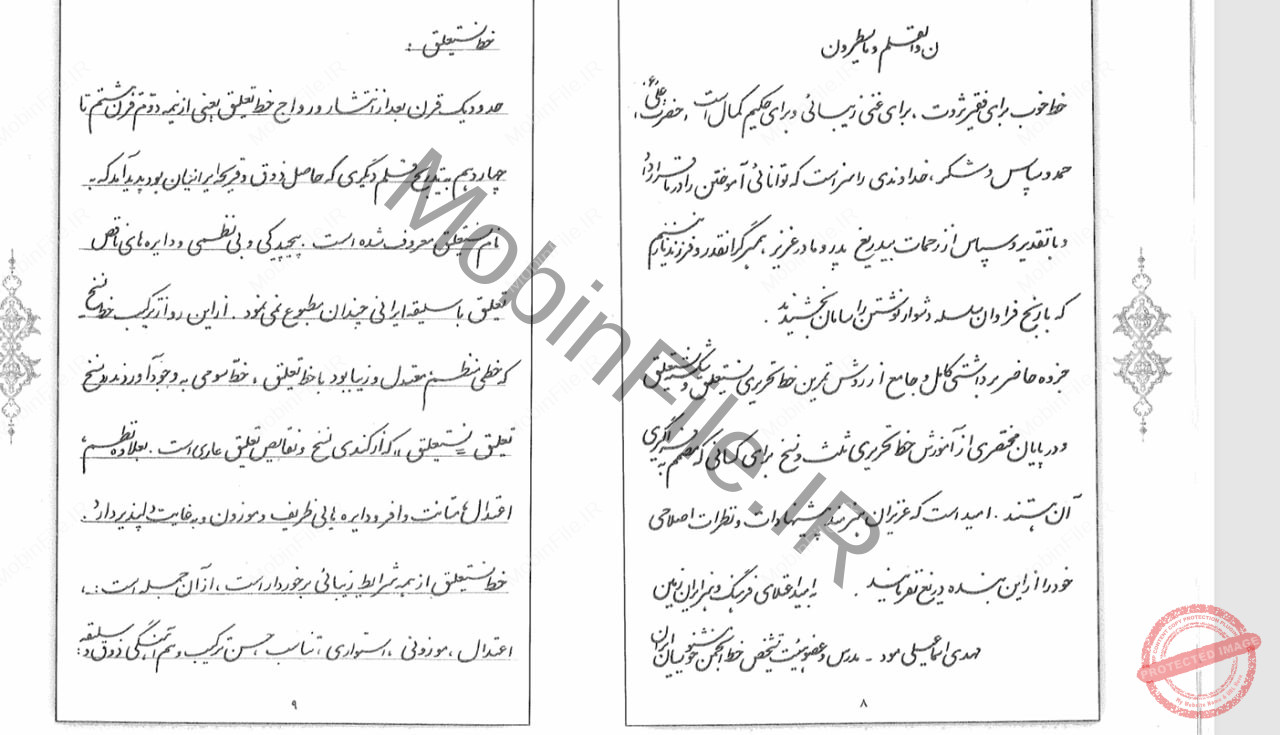 ن والقلم و ما یسطرون
خط خوب برای فقیر ثروت ، برای غنی زیبائی و برای حکیم کمال است ، حضرت علی ،
حمد و سپاس و شکر ، خداوندی را سزاست که توانائی آموختن را در ما قرار داد
و با تقدیر و سپاس از زحمات بیدریغ پدر و مادر عزیز ، همسر گرانقدر و فرزند نازنینم
که با رنج فراوان سلسله دشوار نوشتن را سامان بخشیدند .
جزوه حاضر برداشتی کامل و جامع از روش ترین خط تحریری نستعلیق و شکسته نستعلیق
و در پایان مختصری از آموزش خط تحریری ثلث و نسخ برای کسانی که مصمم به فراگیری
آن هستند . امید است که عزیزان هنرمند پیشنهادات و نظرات اصلاحی
خود را از این بنده دریغ نفرمایند . به امید اعتلای فرهنگ و هنر ایران زمین
مهدی اسماعیلی مود - مدرس و عضو هیئت تشخیص خط انجمن خوشنویسان ایران
۸
خط نستعلیق :
حدود یک قرن بعد از انتشار و رواج خط تعلیق یعنی از نیمه دوم قرن هشتم تا
چهاردهم به تدریج قلم دیگری که حاصل ذوق و قریحه ایرانیان بود پدید آمد که به
نام نستعلیق معروف شده است . پیچیدگی و بی نظمی و دایره های ناقص
تعلیق با سلیقه ایرانی چندان مطبوع نمی نمود . از این رو از ترکیب خط نسخ
که خطی منظم معتدل و زیبا بود با خط تعلیق ، خط سومی به وجود آوردند «نسخ
تعلیق = نستعلیق» که از کندی نسخ و نقایص تعلیق عاری است . بعلاوه نظم ،
اعتدال ها متانت وافر و دایره هایی ظریف و موزون و به غایت دلپذیر دارد .
خط نستعلیق از همه شرایط زیبائی برخوردار است ، از آن جمله است : ،
اعتدال ، موزونی ، استواری ، تناسب ، حسن ترکیب و هم آهنگی ذوق و سلیقه :
۹
MobinFile.IR
PROTECTED IMAGE